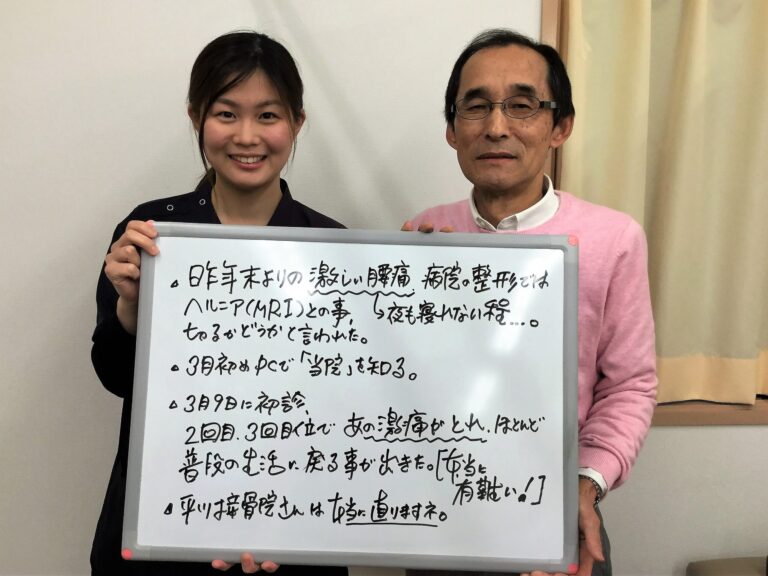 ・昨年末よりの激しい腰痛、病院の整形では
ヘルニア(MRI)との事、↳夜も寝れない程…。
切るかどうかと言われた。
・3月初めPCで「当院」を知る。
・3月9日に初診、
2回目、3回目位であの激痛がとれ、ほとんど
普段の生活に戻る事が出きた。[本当に
有難い!]
・平川接骨院さんは本当に直りますネ。